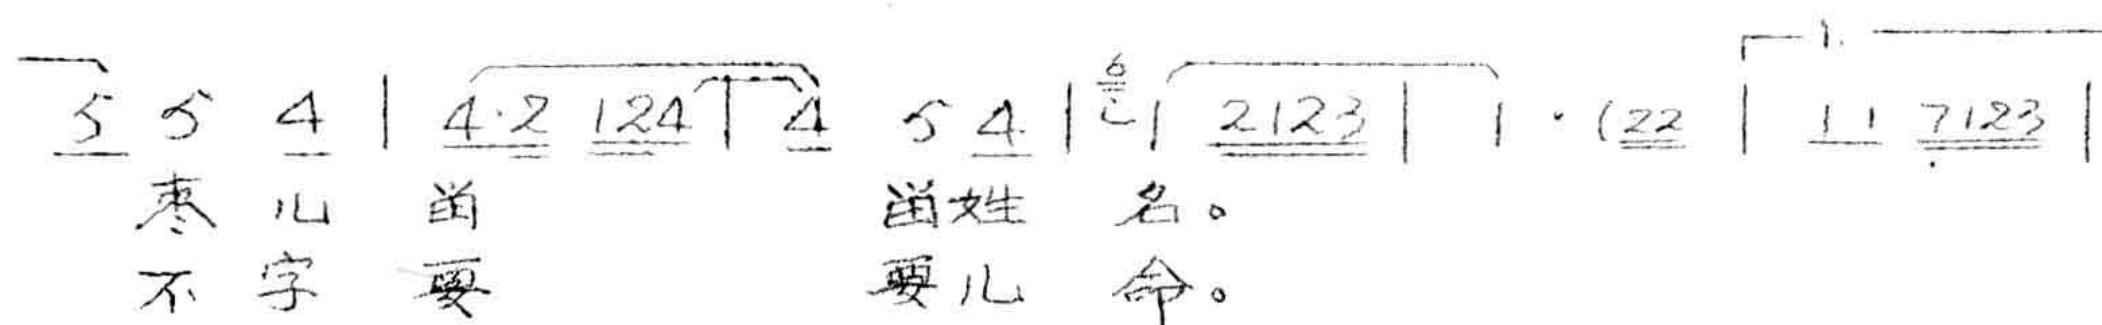 1.
5 5 4 | 4·2 124 | 4 5 4 | 6 1 2123 | 1 · (22 | 11 7123 |
枣 儿 畄 畄 姓 名。
不 字 要 要 儿 命。